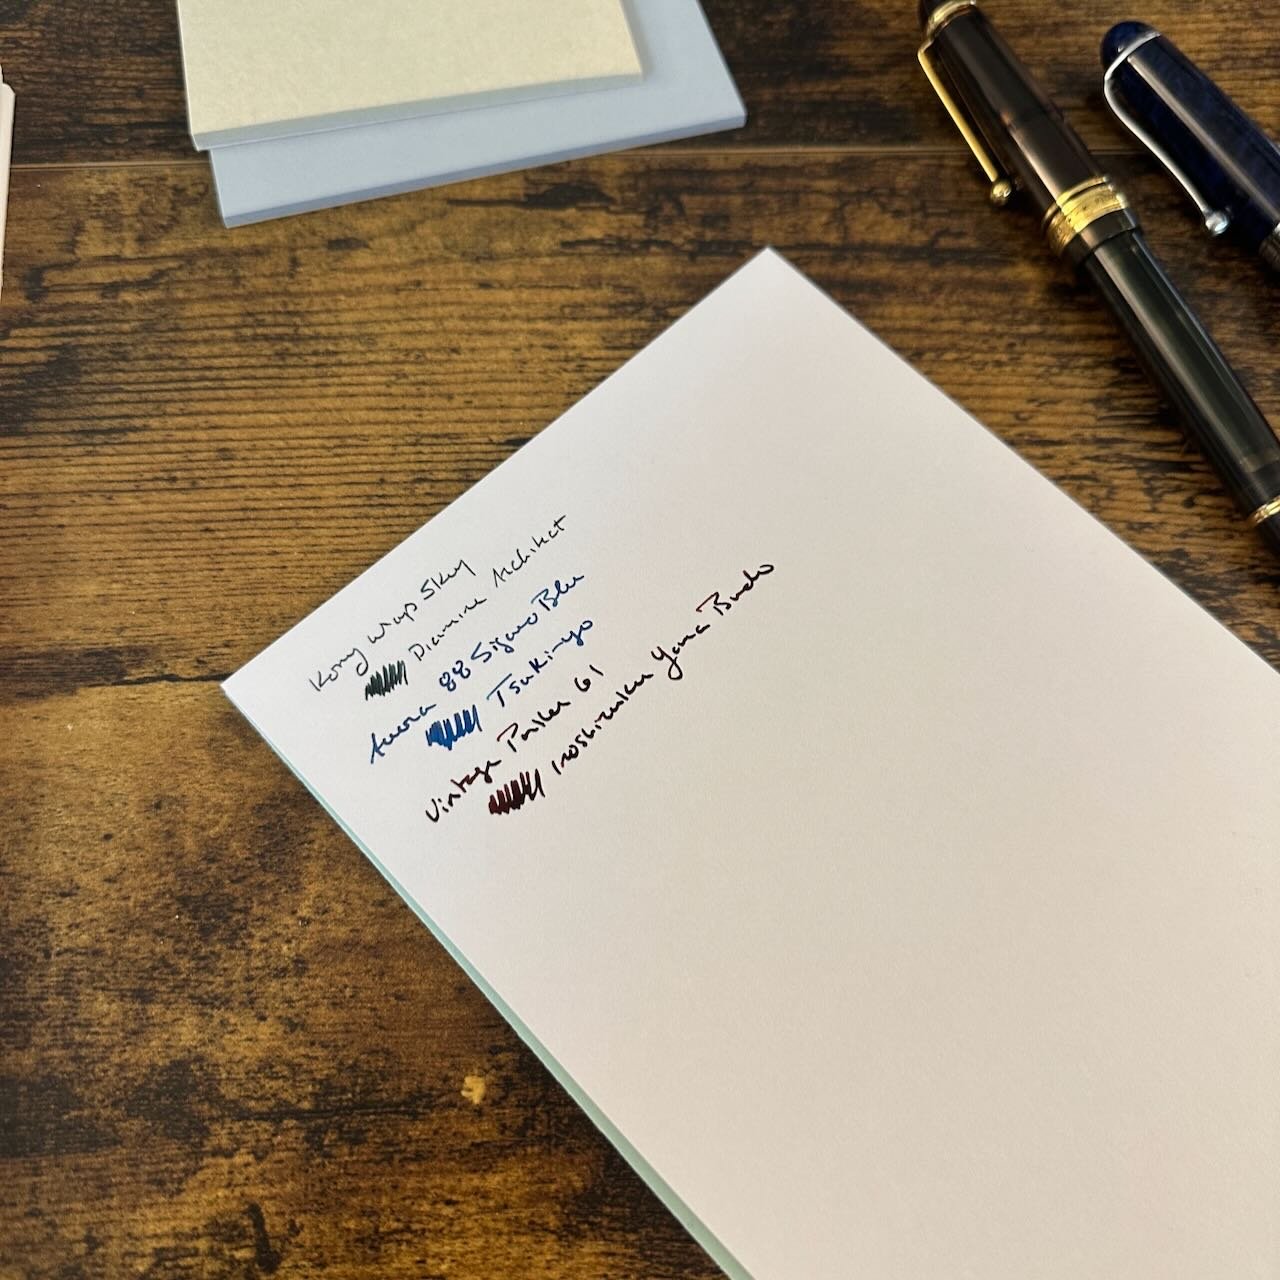 Kony Wrap Sky
Diamine Architect
Aurora 88 Sigaro Blu
Tsuki-yo
Vintage Parker 61
Iroshizuku Yama Budo